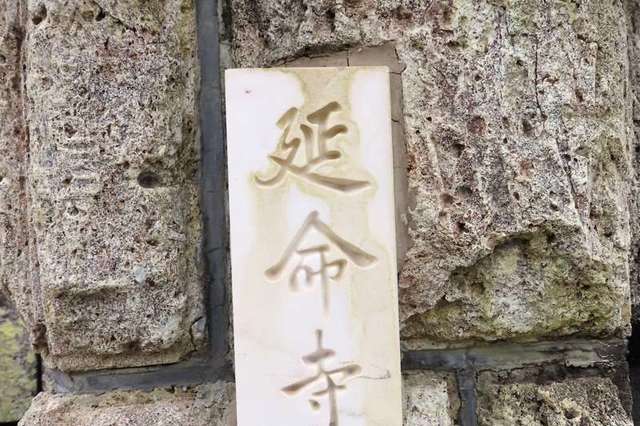 延命寺